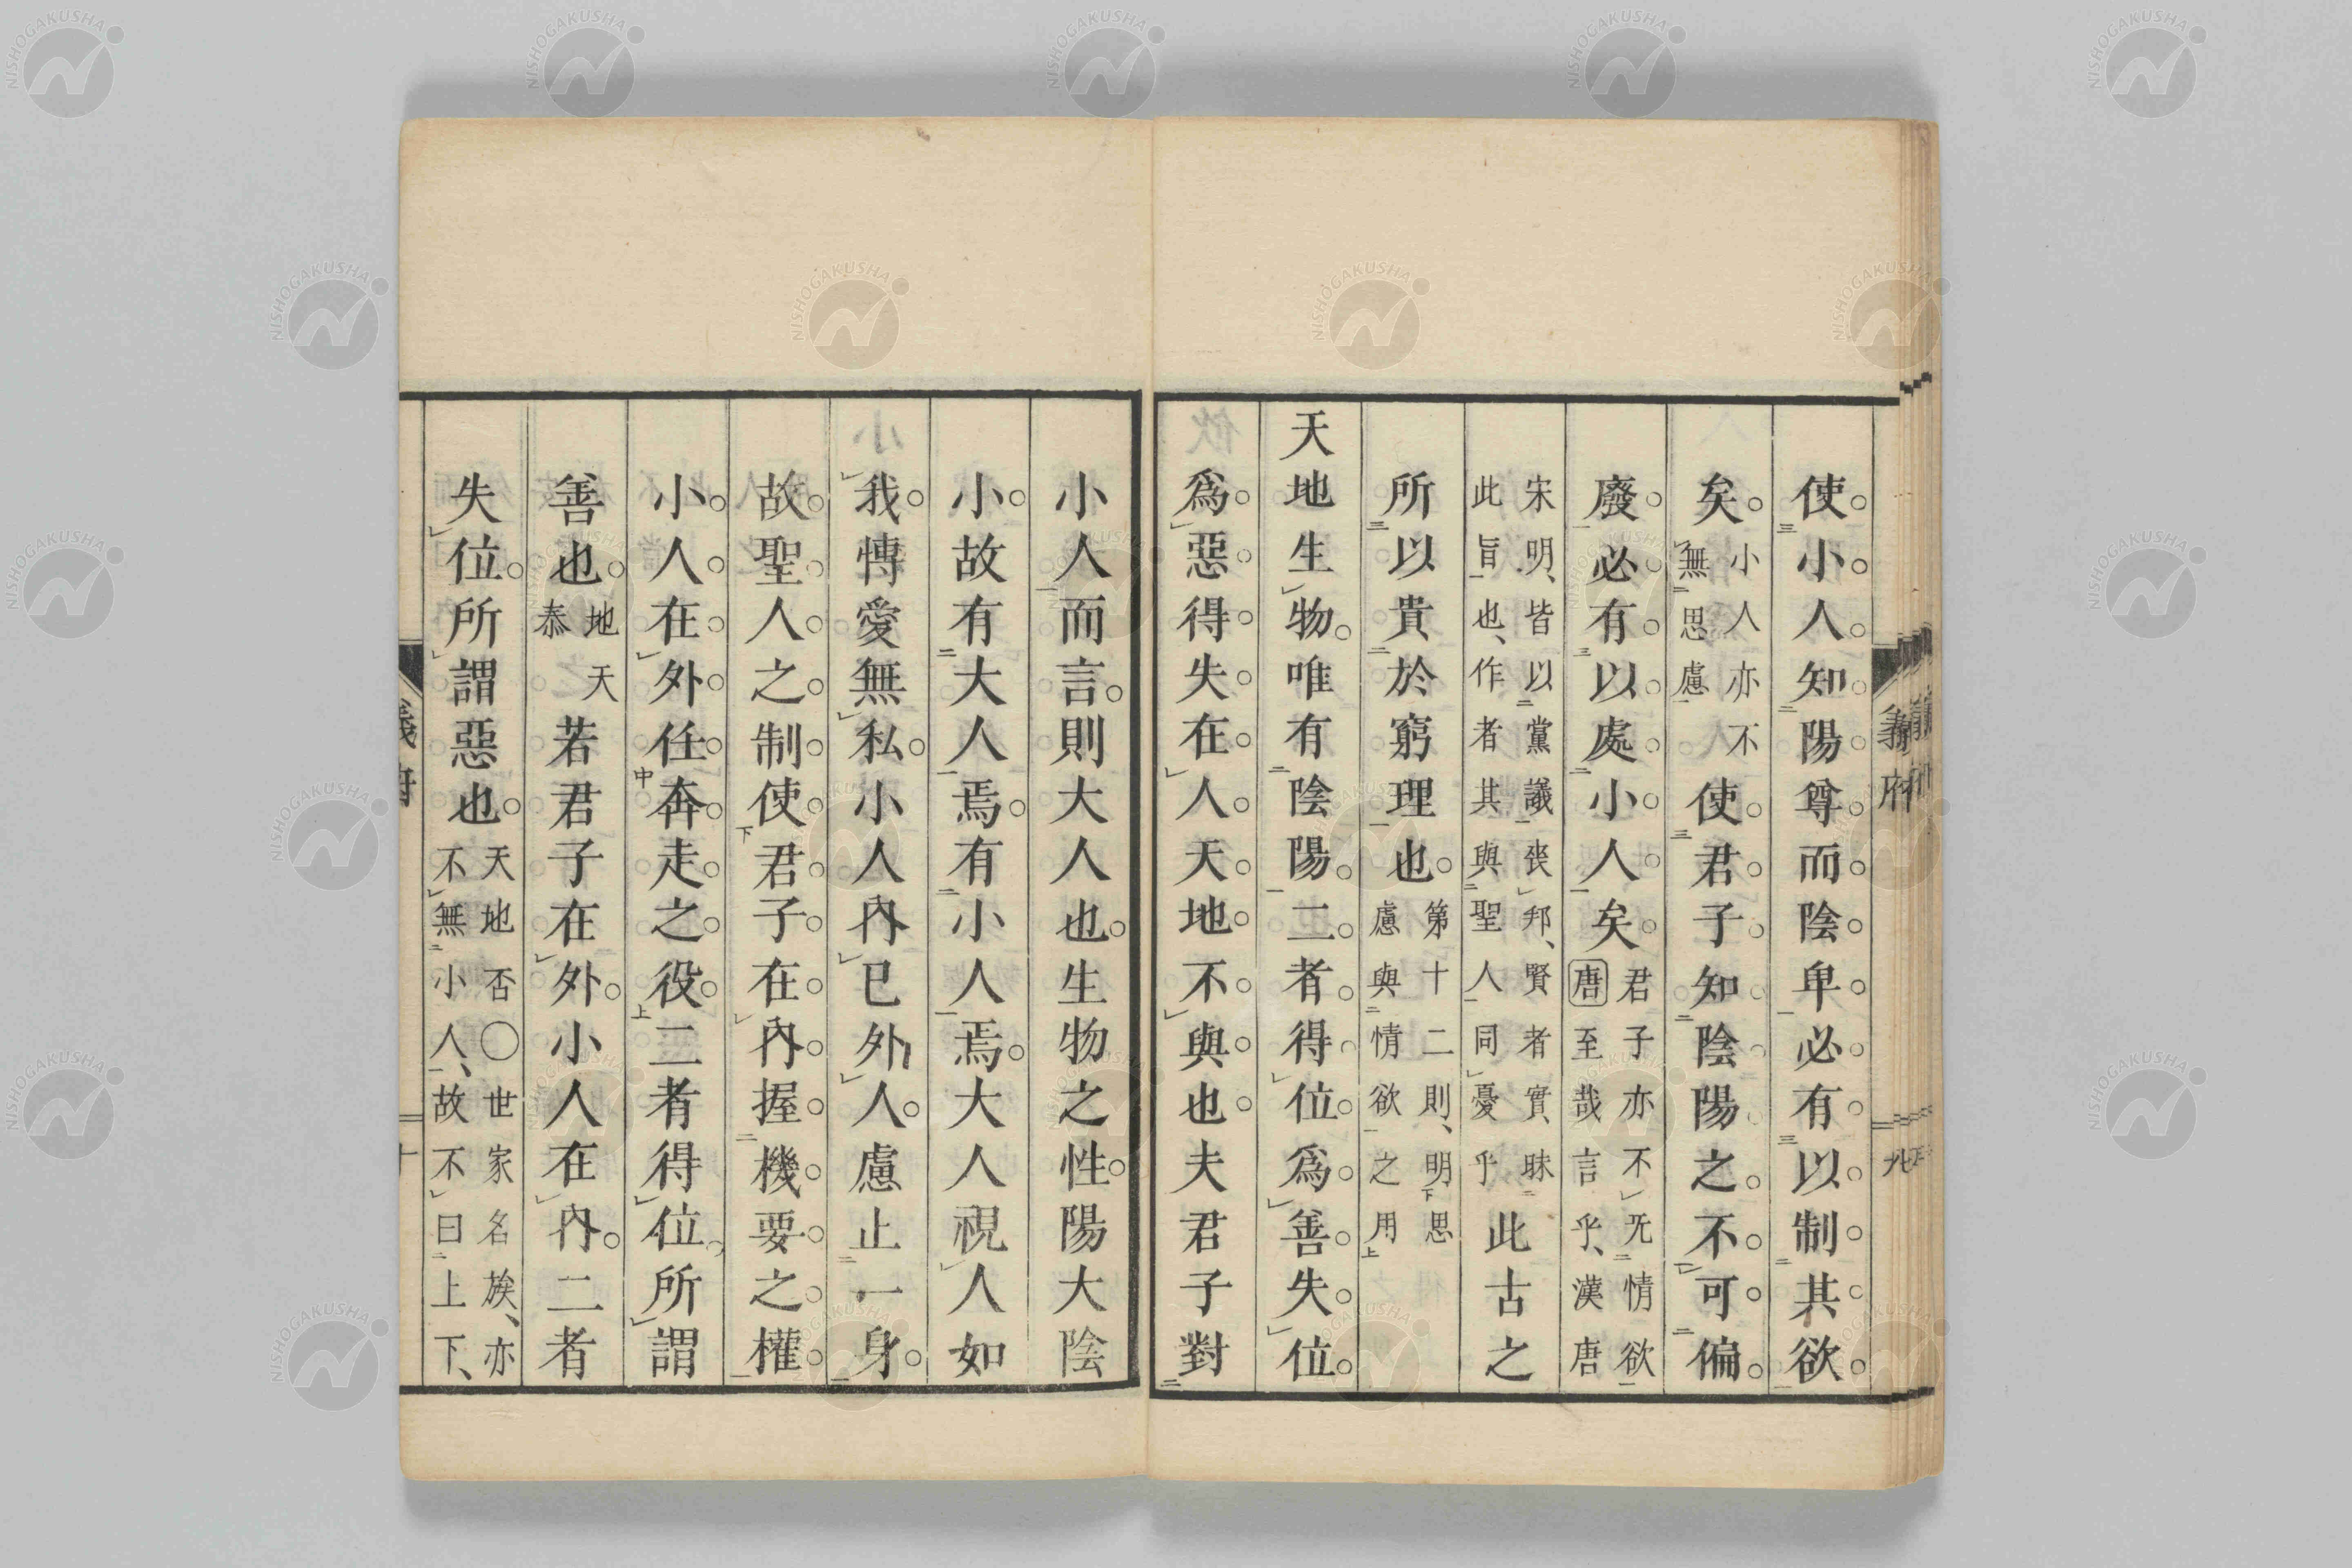 使小人知陽尊而陰卑必有以制其欲
矣小人亦不無思慮使君子知陰陽之不可偏
廢必有以處小人矣君子亦不无情欲唐至哉言乎、漢唐
宋明、皆以黨議喪邦、賢者實昧此旨也、作者其與聖人同憂乎此古之
所以貴於窮理也第十二則、明思慮與情欲之用
天地生物唯有陰陽二者得位爲善失位
爲惡得失在人天地不與也夫君子對
小人而言則大人也生物之性陽大陰
小故有大人焉有小人焉大人視人如
我慱愛無私小人內已外人慮止一身
故聖人之制使君子在內握機要之權
小人在外任奔走之役二者得位所謂
善也地天泰若君子在外小人在內二者
失位所謂惡也天地否○世家名族、亦不無小人、故不曰上下、
義府
九
NISHOGAKUSHA